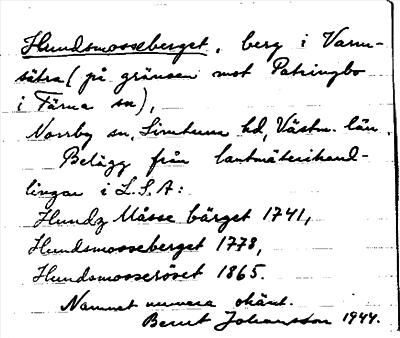 Hundsmosseberget, berg i Varm-
sätra (på gränsen mot Patringbo
i Tärna sn),
Norrby sn, Simtuna hd, Västm. län.
Belägg från lantmäterihand-
lingar i L.S.A:
Hundz Måsse bärget 1741,
Hundsmosseberget 1778,
Hundsmosseröset 1865.
Namnet numera okänt.
Bernt Johansson 1944.